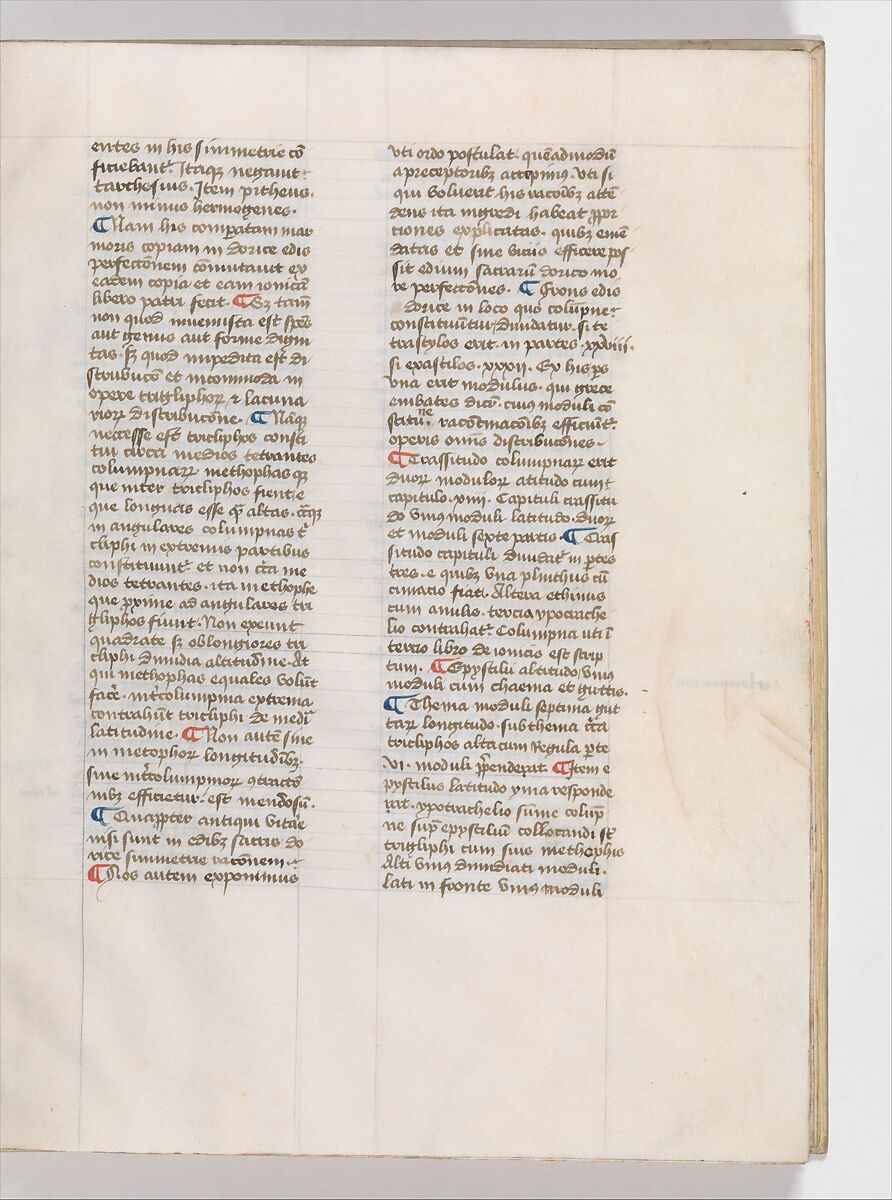 entes in his simmetrie cō
ficiebant᷑. Itaqꝫ negauit
tarchesius. Item pitheus.
non minus hermogenes.
¶Nam his comparatam mar
moris copiam in dorice edis
perfectōnem cōmutauit ex
eadem copia et eam ionicā
libero patri fecit. ¶Sꝫ tam̄
non quod inuenusta est spēs
aut genus aut forme digni
tas. sꝫ quod impedita est di
stribucō et incommoda in
opere trigliphoꝝ ⁊ lacuna
rioꝝ distribucōne. ¶Nāqꝫ
necesse est tricliphos consti
tui circa medios tetrantes
columpnaꝝ methophasqꝫ
que inter tricliphos fient e
que longas esse qꝫ altas.
in angulares columpnas t᷑
cliphi in extremis partibus
constituunt᷑ et non cōtra me
dios tetrantes. ita methophe
que ꝓxime ad angulares tri
gliphos fiunt. Non exeunt
quadrate sꝫ oblongiores tri
cliphi dimidia altitudine. At
qui methophas equales volūt
facē. int᷑columpnia extrema
contrahūt tricliphi de medī
latitudine. ¶Non autē siue
in metophoꝝ longitudībꝫ.
siue int᷑columpnioꝝ ꝯtractō
nibꝫ efficietur. est mendosū.
¶Quaꝓpter antiqui vitare
visi sunt in edibꝫ sacris do
rice simmetrie racōnem.
¶Nos autem exponimus
vti ordo postulat. quēadmodū
a preceptoribꝫ accepimus. vti si
qui voluerit his racōibꝫ attē
dens ita ingredi habeat ꝓpor
tiones explicatas. quibꝫ emē
datas et sine viciis efficere pos
sit edium sacrarū dorico mo
re perfectōnes. ¶Frons edis
dorice in loco quo colūpne
constituūtur diuidatur. si te
trastylos erit. in partes xxviii.
si exastilos. xxxii. Ex his ps
vna erit modulus. qui grece
embates dicit᷑. cuius moduli cō
stitūne racōcinacōibꝫ efficiūt᷑
operis omnis distribucōnes.
¶Crassitudo columpnaꝝ erit
duoꝝ moduloꝝ altitudo cum
capitulo. xiiii. Capituli crassitu
do vnius moduli. latitudo. duoꝝ
et moduli sexte partis. ¶Cras
situdo capituli diuidat᷑ in ꝑtes
tres. e quibꝫ vna plinthus cū
cimacio fiat. Altera ethinus
cum anulis. tercia ypotrache
lio contrahat᷑. Columpna uti ī
tercio libro de ionicis est scrip
tum. ¶Epystilii altitudo. vnius
moduli cum thaenia et guttis.
¶Thenia moduli septima gut
taꝝ longitudo. sub thenia cōtra
tricliphos alta cum regula ꝑte
vi. moduli p̄penderat. ¶Item e
pystilus latitudo yma responde
rat. ypotrachelio sūme colūp
ne supra epystiliū collocandi st̄
trigliphi cum suis methophis
Alti vnius dimidiati moduli.
lati in fronte vnius moduli